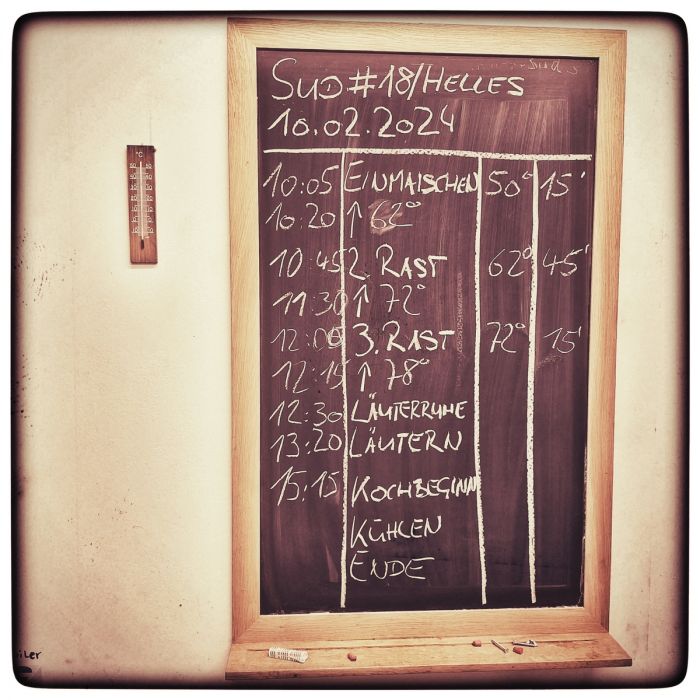 SUD #18/HELLES
10.02.2024
10:05 EINMAISCHEN 50° 15'
10:20 ↑ 62°
10:45 2. RAST 62° 45'
11:30 ↑ 72°
12:00 3. RAST 72° 15'
12:15 ↑ 78°
12:30 LÄUTERRUHE
13:20 LÄUTERN
15:15 KOCHBEGINN
KÜHLEN
ENDE